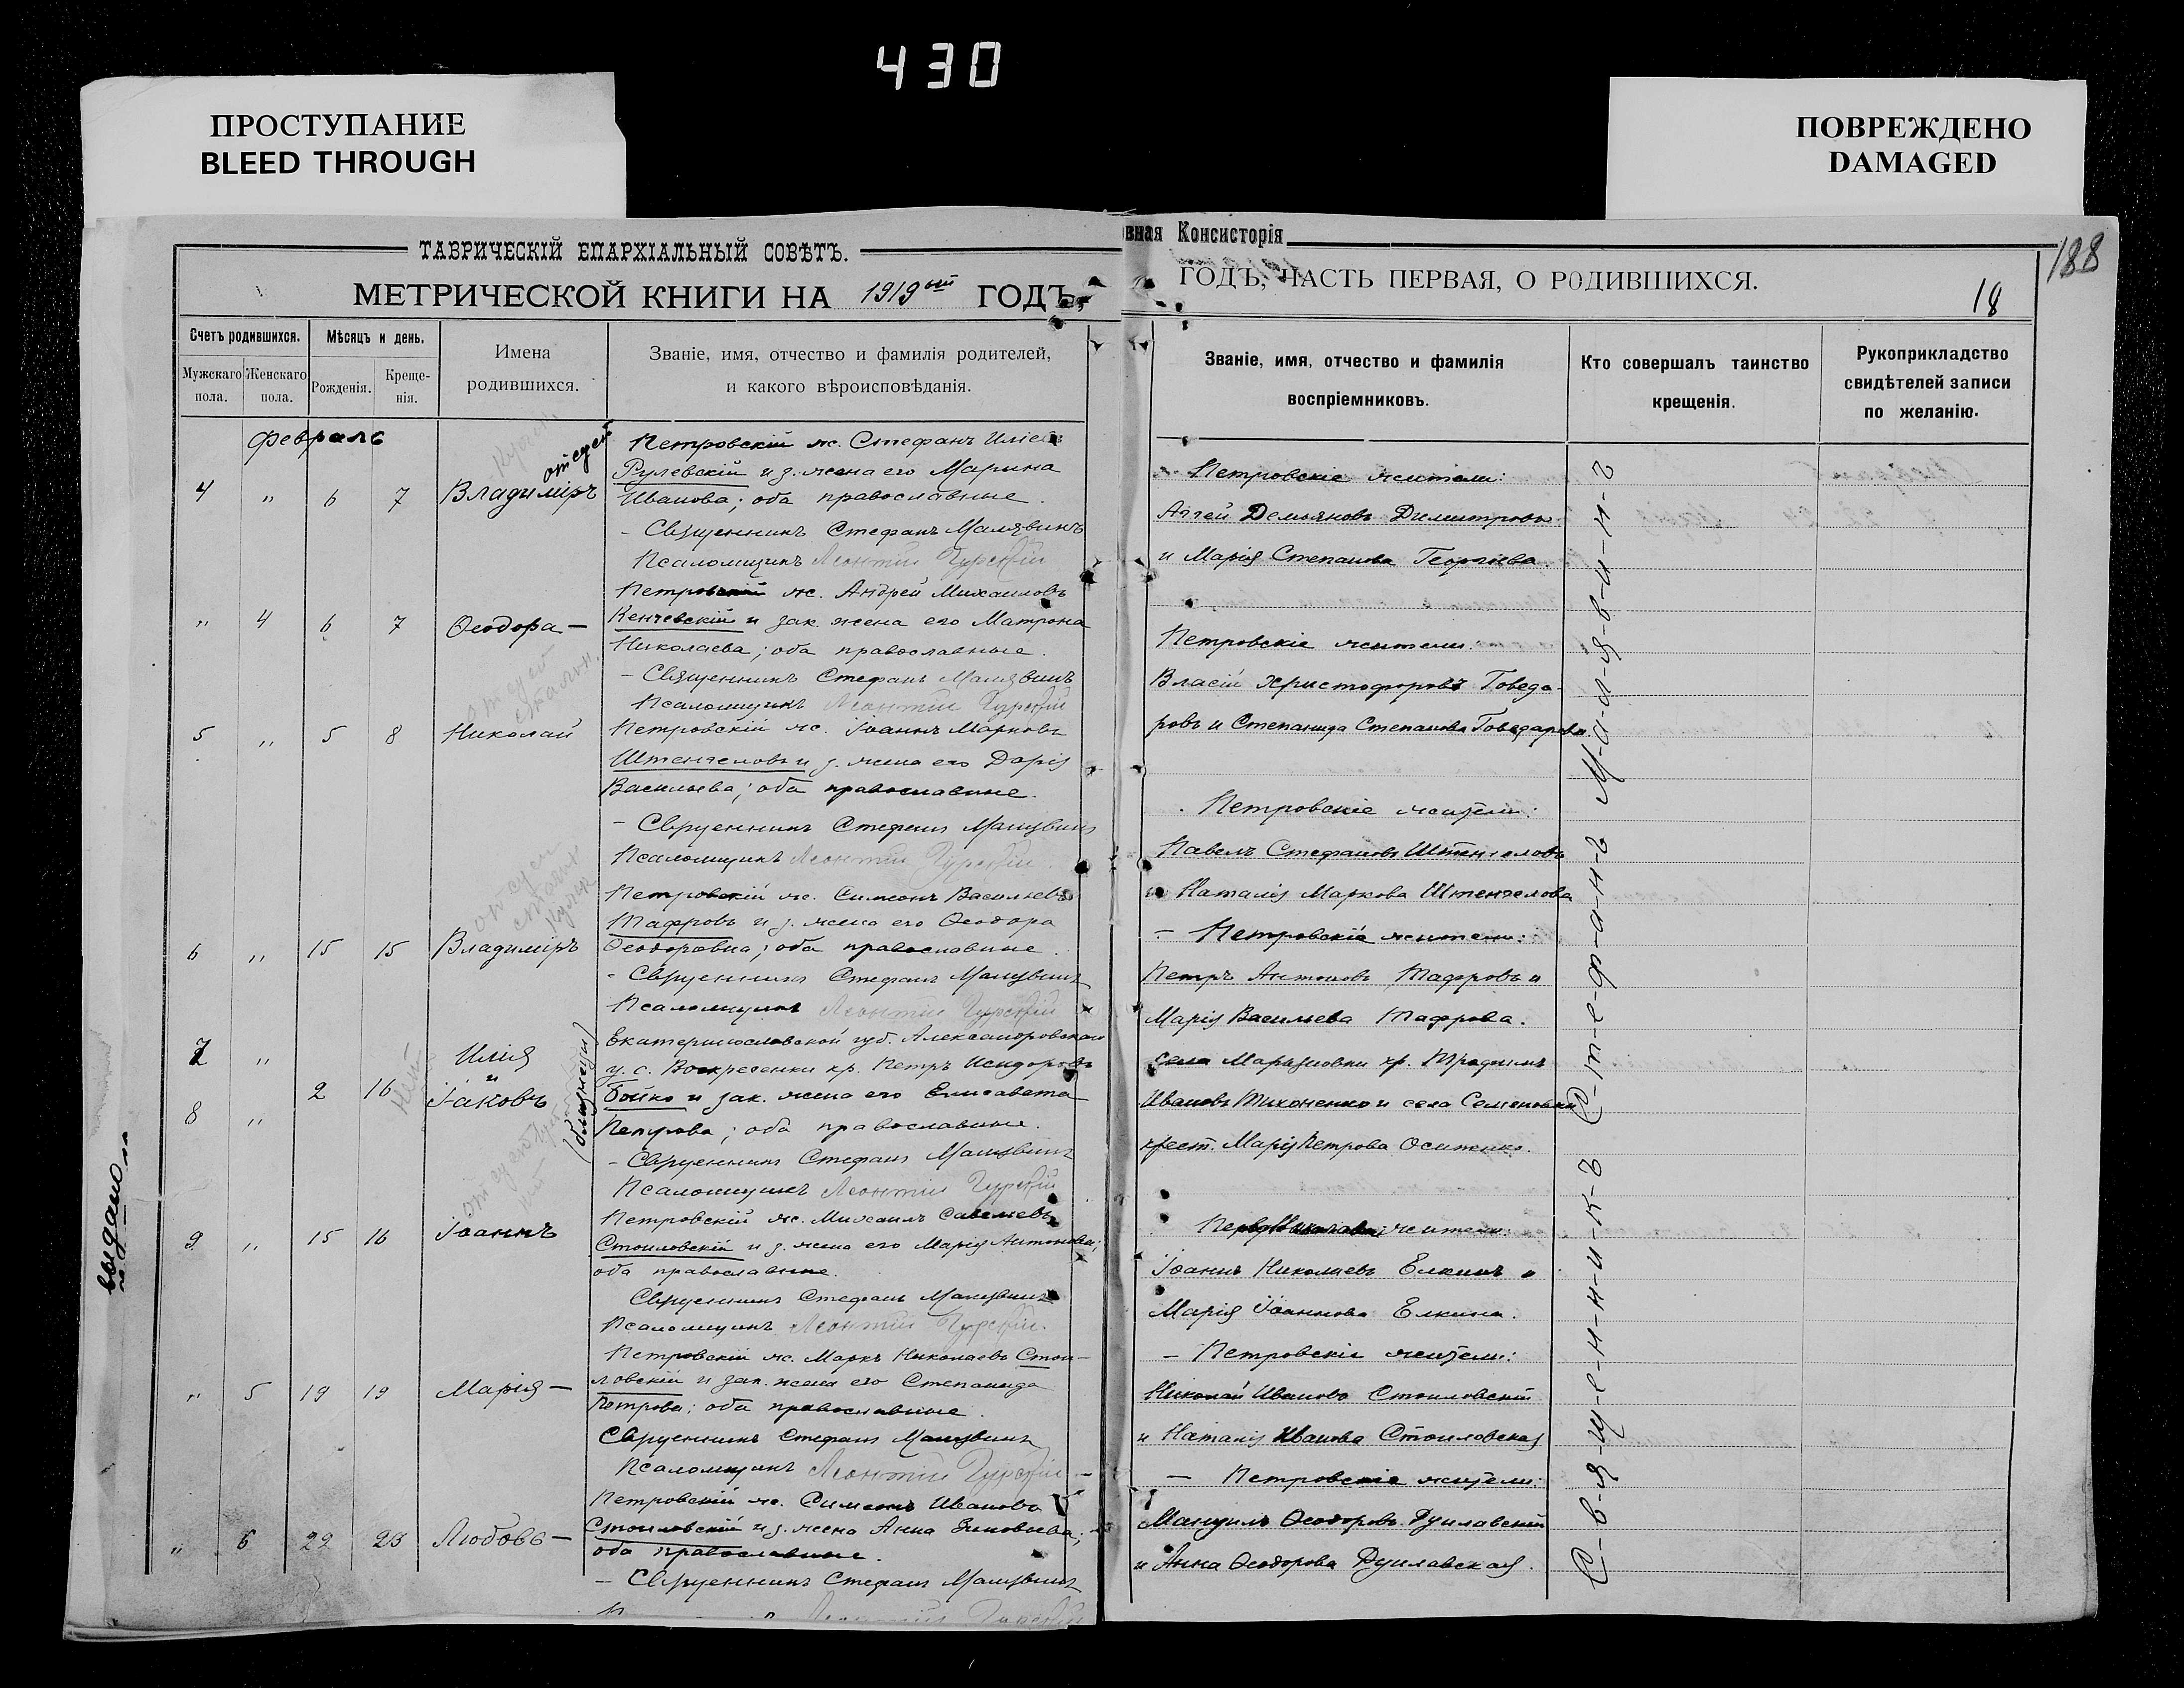 430
ПРОСТУПАНИЕ
BLEED THROUGH
ПОВРЕЖДЕНО
DAMAGED
ТАВРИЧЕСКІЙ ЕПАРХІАЛЬНЫЙ СОВѢТЪ.
МЕТРИЧЕСКОЙ КНИГИ НА 1919ый ГОДЪ,
Счетъ родившихся.
Мѣсяцъ и день.
Имена
родившихся.
Званіе, имя, отчество и фамилія родителей,
и какого вѣроисповѣданія.
Мужскаго
пола.
Женскаго
пола.
Рожденія.
Креще-
нія.
февраль
4 " 6 7 Владиміръ
Петровскій ж. Стефанъ Иліевъ
Рулевскій и з. жена его Марина
Иванова; оба православные.
- Священникъ Стефанъ Малявинъ
Псаломщикъ Леонтій
" 4 6 7 Ѳеодора —
Петровскій ж. Андрей Михаиловъ
Кенчевскій и зак. жена его Матрона
Николаева; оба православные.
- Священникъ Стефанъ Малявинъ
Псаломщикъ Леонтій
5 " 5 8 Николай
Петровскій ж. Іоаннъ Марковъ
Штенгеловъ и з. жена его Дарія
Васильева; оба православные.
- Священникъ Стефанъ Малявинъ
Псаломщикъ Леонтій
6 " 15 15 Владиміръ
Петровскій ж. Симеонъ Васильевъ
Тафровъ и з. жена его Ѳеодора
Ѳеодоровна; оба православные.
- Священникъ Стефанъ Малявинъ
Псаломщикъ Леонтій
7 "
8 "
2 16
Илія
и
Іаковъ
(близнецы)
Екатеринославской губ. Александровскаго
у. с. Воскресенки кр. Петръ Исидоровъ
Бойко и зак. жена его Елисавета
Петрова; оба православные.
- Священникъ Стефанъ Малявинъ
Псаломщикъ Леонтій
9 " 15 16 Іоаннъ
Петровскій ж. Михаилъ Савельевъ
Стоиловскій и з. жена его Марія Антонова;
оба православные.
Священникъ Стефанъ Малявинъ
Псаломщикъ Леонтій
" 5 19 19 Марія —
Петровскій ж. Маркъ Николаевъ Стои-
ловскій и зак. жена его Степанида
Петрова; оба православные.
Священникъ Стефанъ Малявинъ
Псаломщикъ Леонтій
" 6 22 23 Любовь —
Петровскій ж. Симеонъ Ивановъ
Стоиловскій и з. жена Анна Зиновьева;
оба православные.
- Священникъ Стефанъ Малявинъ
выдано
вная Консисторія
ГОДЪ, ЧАСТЬ ПЕРВАЯ, О РОДИВШИХСЯ.
188
18
Званіе, имя, отчество и фамилія
воспріемниковъ.
Кто совершалъ таинство
крещенія.
Рукоприкладство
свидѣтелей записи
по желанію.
Петровскіе жители:
Аггей Демьяновъ Димитровъ
и Марія Степанова Георгіева.
Петровскіе жители:
Власій Христофоровъ Говеда-
ровъ и Степанида Степанова Говедарова.
Петровскіе жители:
Павелъ Стефановъ Штенгеловъ
и Наталія Маркова Штенгелова
- Петровскіе жители:
Петръ Антоновъ Тафровъ и
Марія Васильева Тафрова.
села кр. Трофимъ
Ивановъ Тихоненко и села Семеновки
крест. Марія Петрова Осипенко.
жители:
Іоаннъ Николаевъ Елкинъ и
Марія Іоаннова Елкина.
- Петровскіе жители:
Николай Ивановъ Стоиловскій
и Наталія Иванова Стоиловская
— Петровскіе жители:
Мануилъ Ѳеодоровъ Дуилавскій
и Анна Ѳеодорова Дуилавская.
С-в-я-щ-е-н-н-и-к-ъ С-т-е-ф-а-н-ъ М-а-л-я-в-и-н-ъ